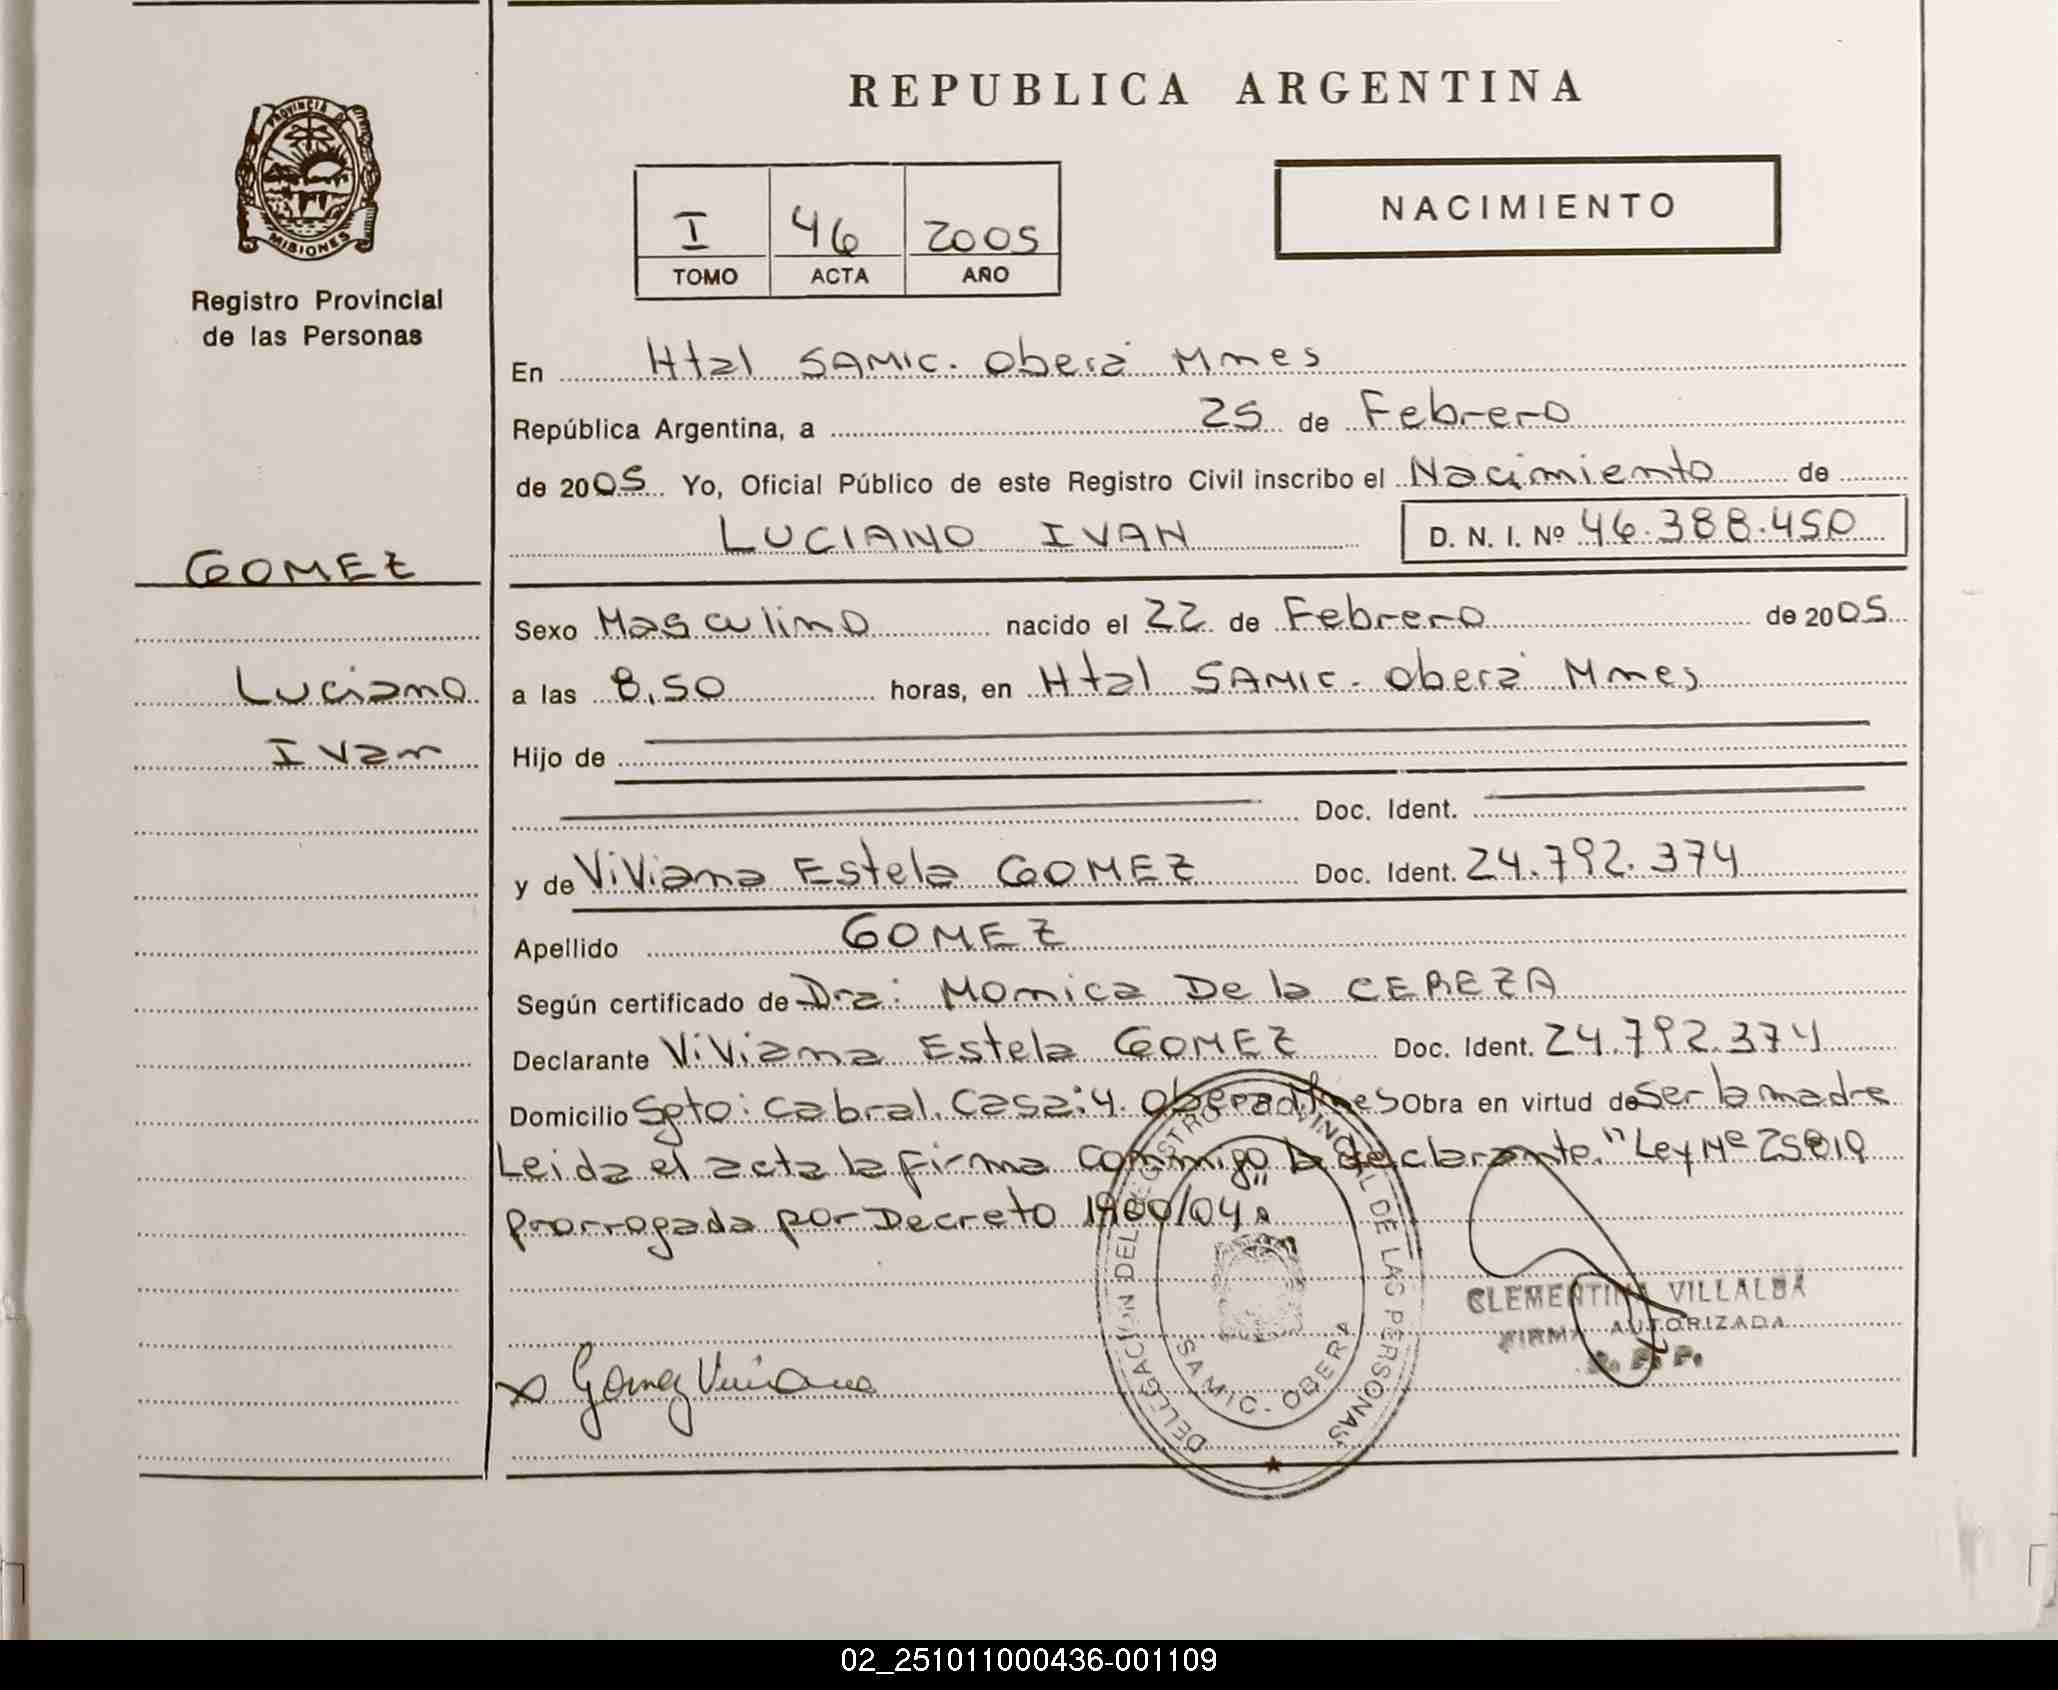 REPUBLICA ARGENTINA
PROVINCIA DE MISIONES
Registro Provincial
de las Personas
I 46 2005
TOMO ACTA AÑO
NACIMIENTO
En Htal SAMIC. Oberá Mnes
República Argentina, a 25 de Febrero
de 2005 Yo, Oficial Público de este Registro Civil inscribo el Nacimiento de
LUCIANO IVAN D. N. I. Nº 46.388.450
GOMEZ
Luciano
Ivan
Sexo Masculino nacido el 22 de Febrero de 2005
a las 8,50 horas, en Htal SAMIC. Oberá Mnes
Hijo de
Doc. Ident.
y de Viviana Estela GOMEZ Doc. Ident. 24.792.374
Apellido GOMEZ
Según certificado de Dra: Monica De la CEREZA
Declarante Viviana Estela GOMEZ Doc. Ident. 24.792.374
Domicilio Sgto: Cabral. Casa: 4. Oberá Mnes Obra en virtud de Ser la madre
Leida el acta la firma conmigo la declarante. "Ley Nº 25819
prorrogada por Decreto 1900/04"
DELEGACION DEL REGISTRO PROVINCIAL DE LAS PERSONAS
SAMIC - OBERA
CLEMENTINA VILLALBA
FIRMA AUTORIZADA
R. P. P.
x Gomez Viviana
02_251011000436-001109